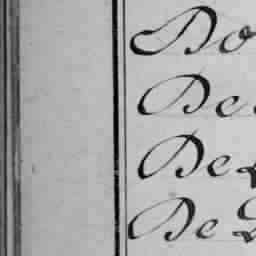 Do
De
De
De